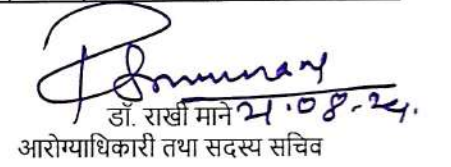 डॉ. राखी माने 21.08.24.
आरोग्याधिकारी तथा सदस्य सचिव